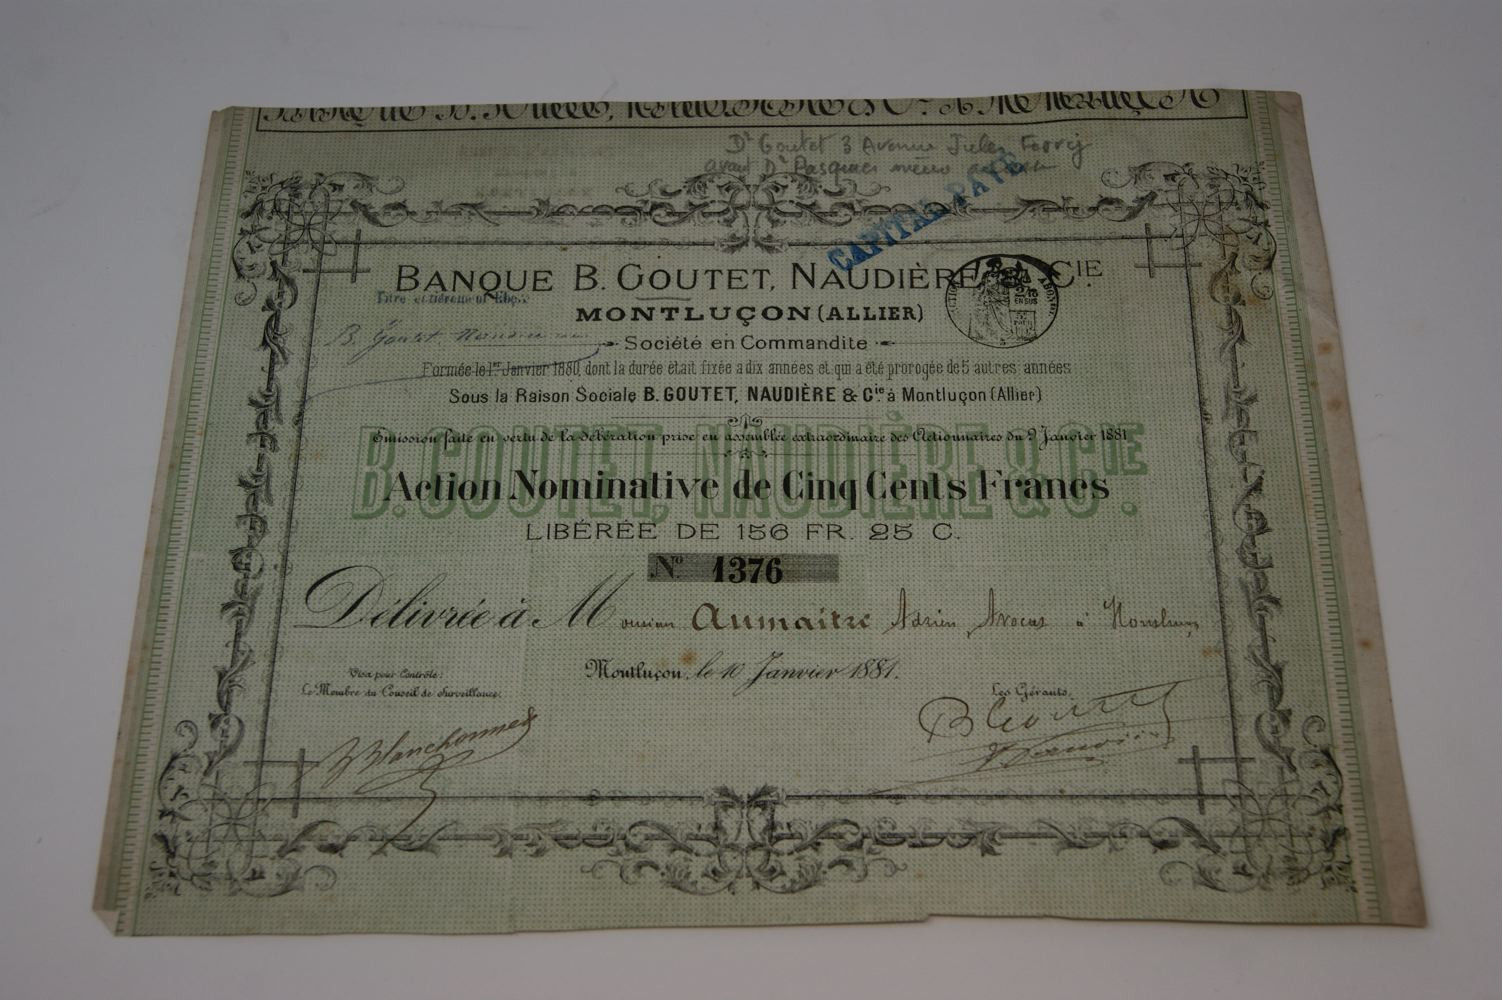 Dr Goutet 3 Avenue Jules Ferry
avant Dr
CAPITAL PAYÉ
BANQUE B. GOUTET, NAUDIÈRE & CIE.
Titre
MONTLUÇON (ALLIER)
B. Goutet Naudiere
Société en Commandite
Formée le 1er Janvier 1880, dont la durée était fixée a dix années et qui a été prorogée de 5 autres années
Sous la Raison Sociale B. GOUTET, NAUDIÈRE & Cie à Montluçon (Allier)
Emission faite en vertu de la délibération prise en assemblée extraordinaire des Actionnaires du 9 Janvier 1881
B. GOUTET, NAUDIÈRE & CIE.
Action Nominative de Cinq Cents Francs
LIBÉRÉE DE 156 FR. 25 C.
No 1376
Délivrée à Monsieur Aumaitre Adrien, Avocat à Montluçon
Montluçon, le 10 Janvier 1881.
Visa pour Contrôle:
Le Membre du Conseil de Surveillance,
Les Gérants,
B Goutet